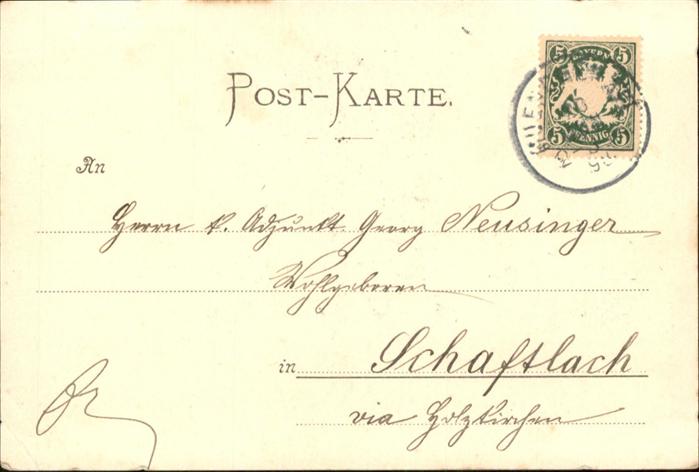 POST-KARTE.
5 BAYERN 5
5 PFENNIG 5
An
Herrn k. Adjunkt Georg Neusinger
Wohlgeboren
in Schaftlach
via Holzkirchen